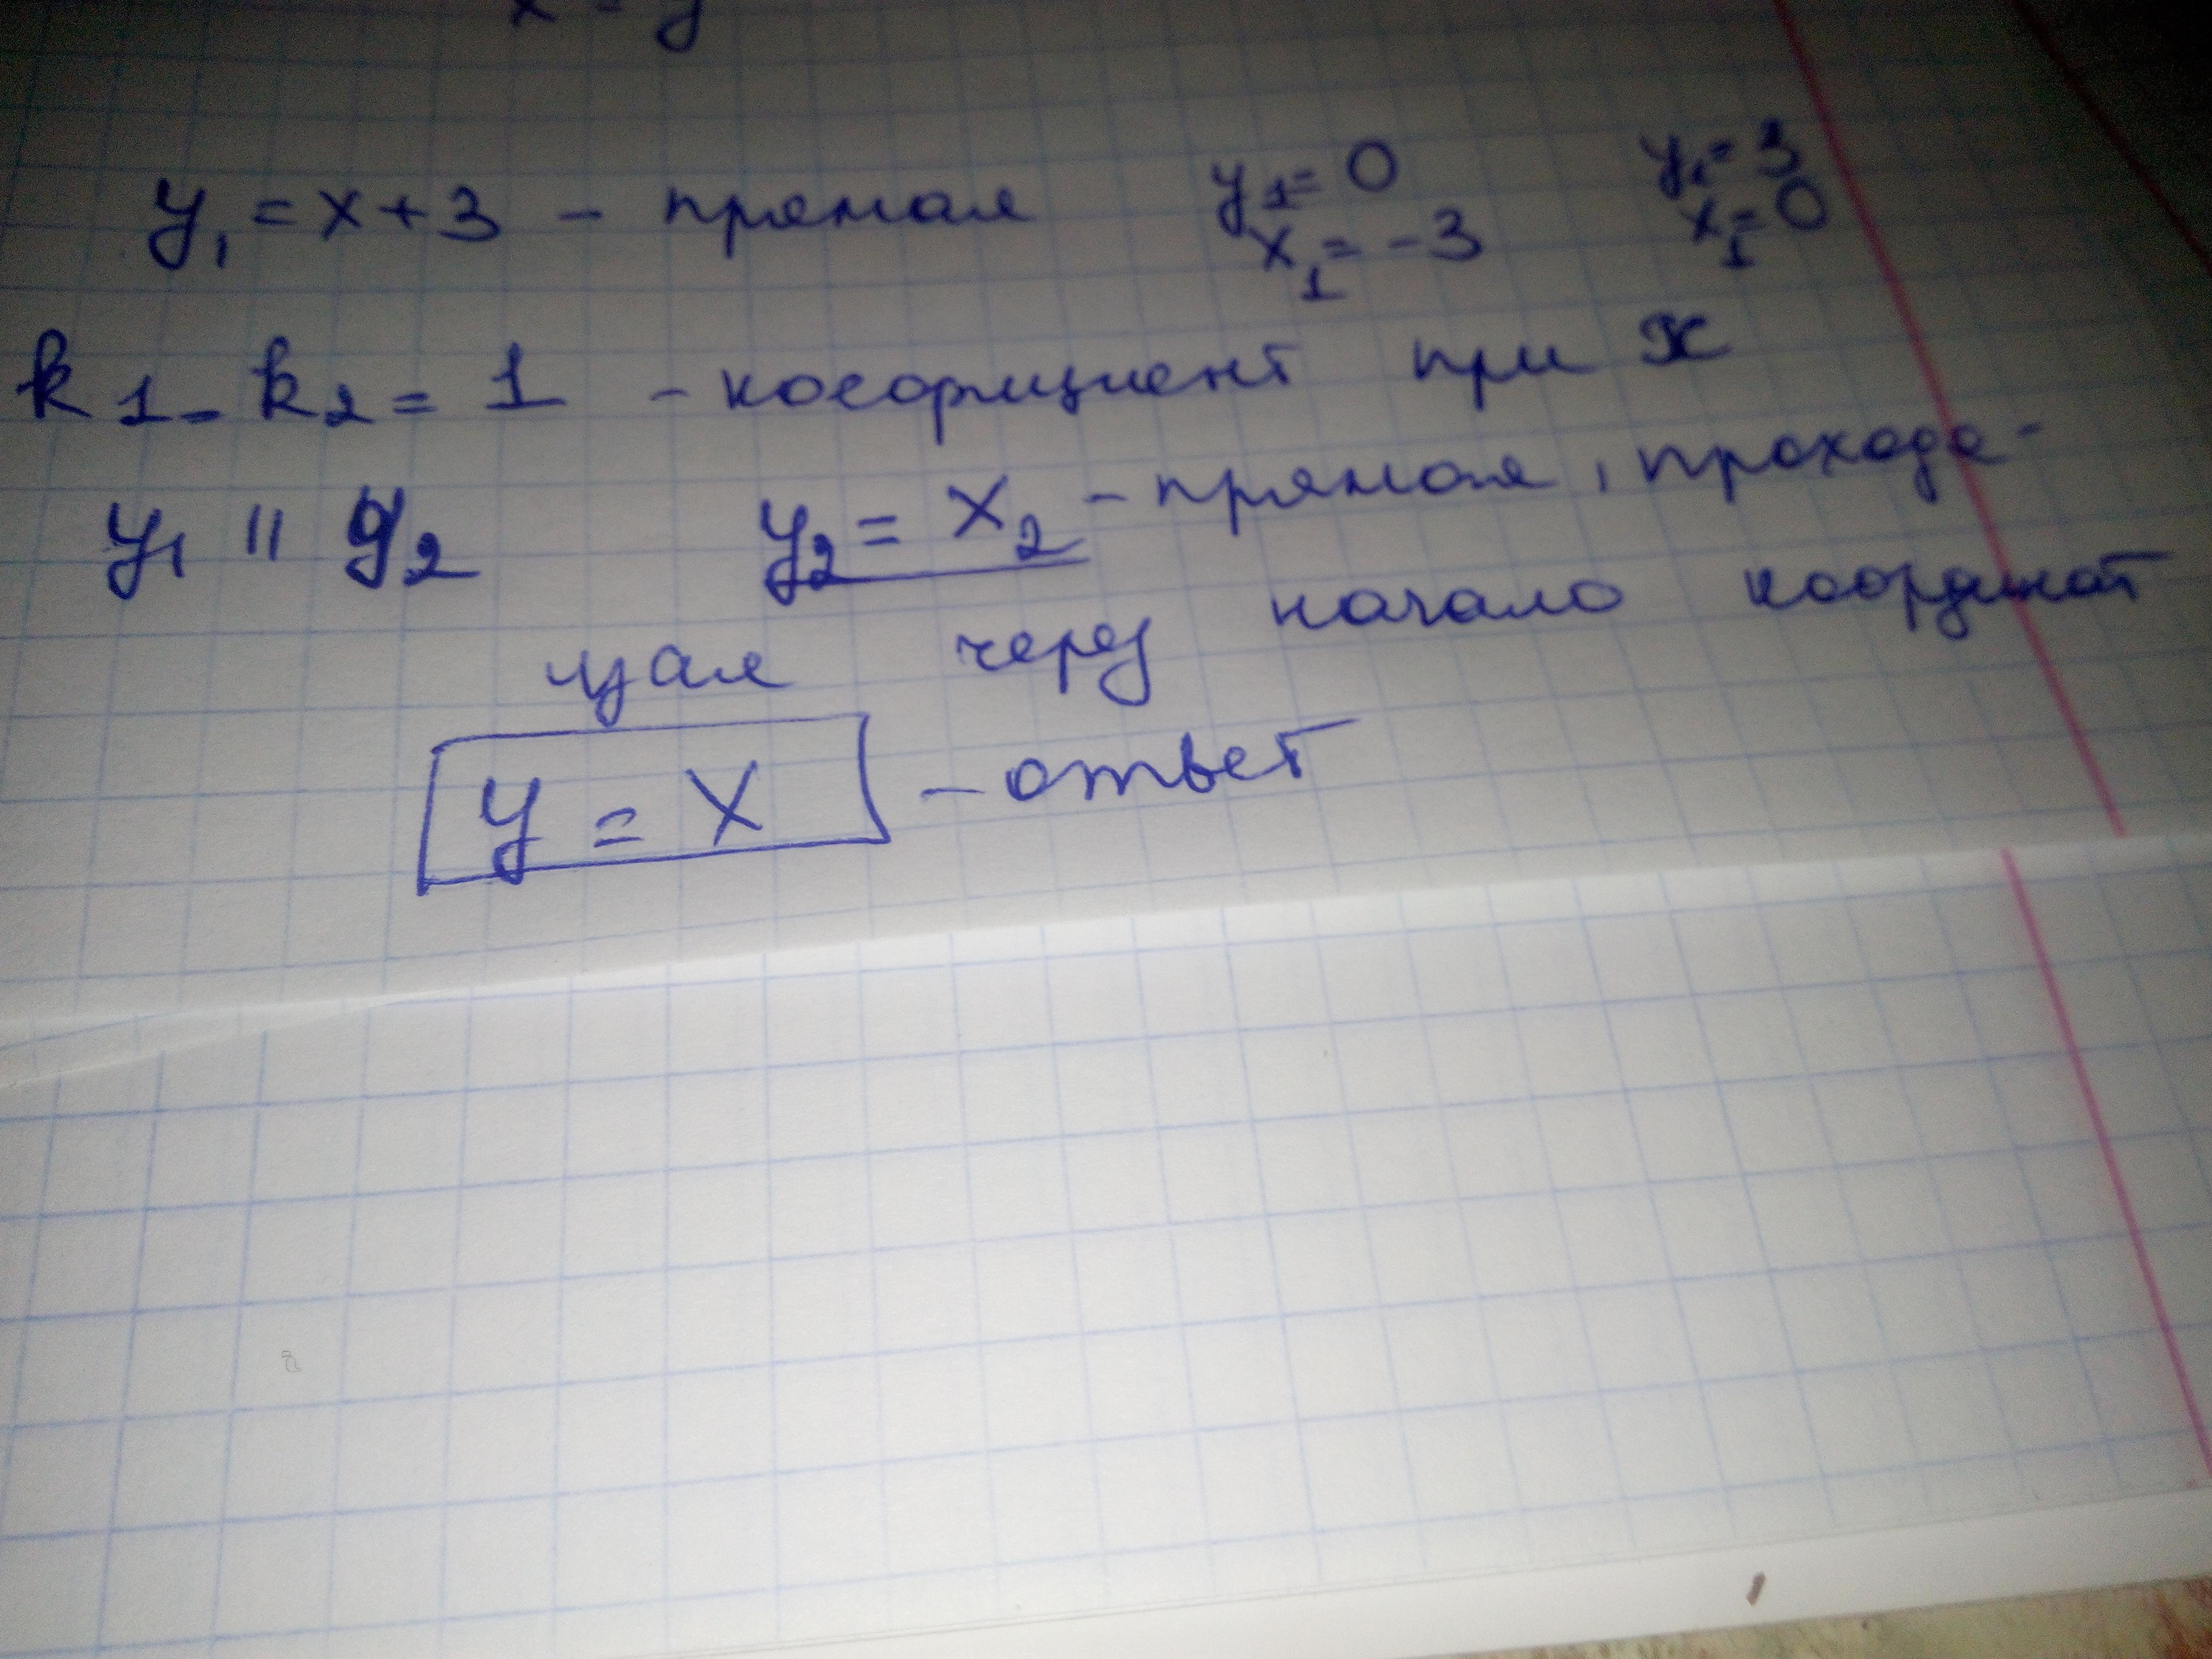 x = y
y₁ = x + 3 – прямая y₁ = 0 y₁ = 3
x₁ = -3 x₁ = 0
k₁ = k₂ = 1 – коефициент при x
y₁ || y₂ y₂ = x₂ – прямая, проходя-
щая через начало координат
y = x – ответ